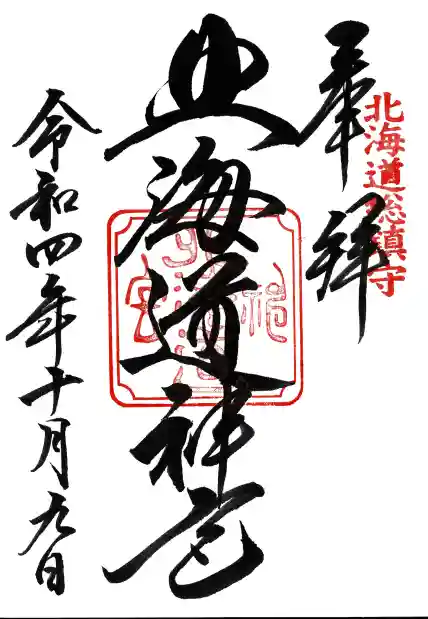 奉拝
北海道総鎮守
北海道神宮
令和四年十月九日